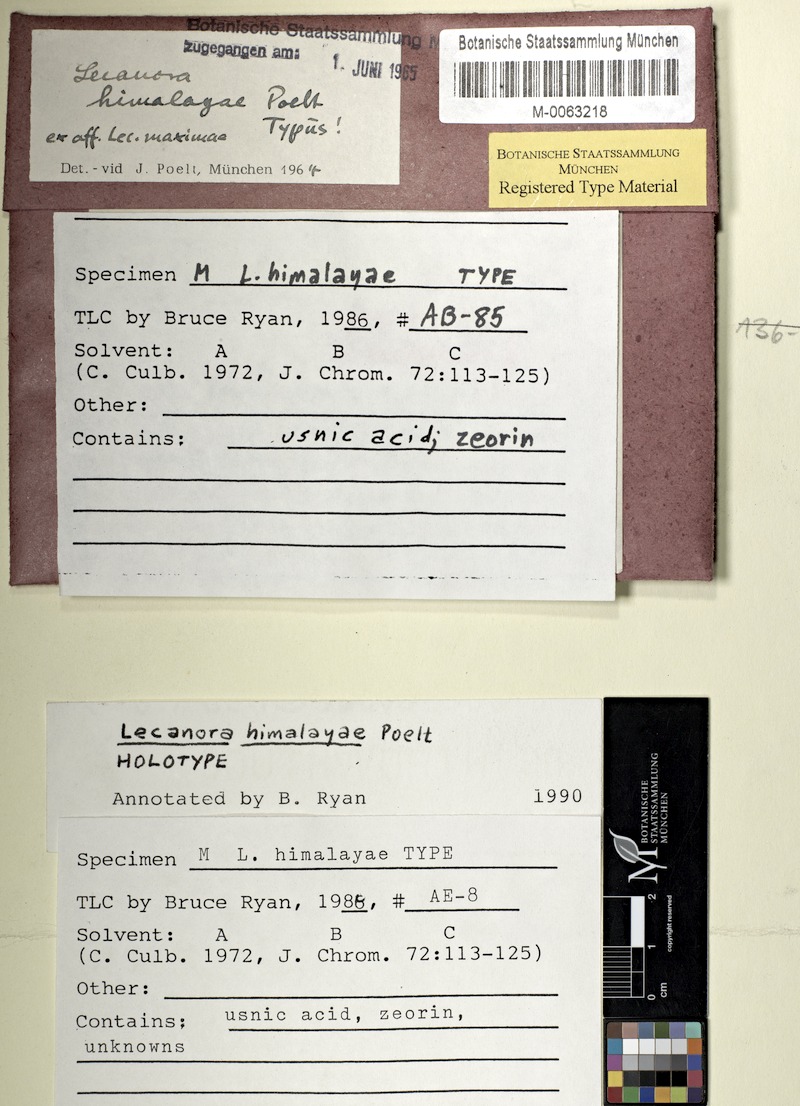 Botanische Staatssammlung M
zugegangen am:
1. JUNI 1965
Lecanora
himalayae Poelt
ex aff. Lec. maximae Typus!
Det. - vid J. Poelt, München 1964
Botanische Staatssammlung München
M-0063218
BOTANISCHE STAATSSAMMLUNG
MÜNCHEN
Registered Type Material
Specimen M L. himalayae TYPE
TLC by Bruce Ryan, 1986, # AB-85
Solvent: A B C
(C. Culb. 1972, J. Chrom. 72:113-125)
Other:
Contains: usnic acid; zeorin
Lecanora himalayae Poelt
HOLOTYPE
Annotated by B. Ryan 1990
Specimen M L. himalayae TYPE
TLC by Bruce Ryan, 1988, # AE-8
Solvent: A B C
(C. Culb. 1972, J. Chrom. 72:113-125)
Other:
Contains: usnic acid, zeorin,
unknowns
BOTANISCHE
STAATSSAMMLUNG
MÜNCHEN
copyright reserved
0 1 2
cm